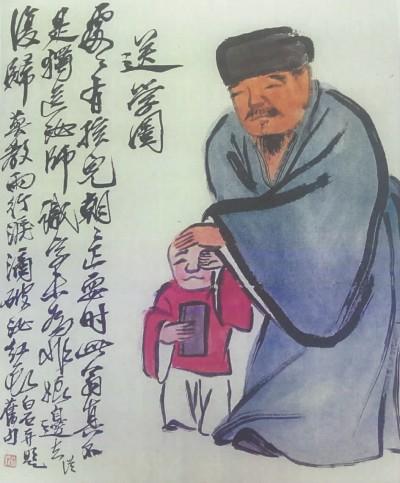 送學圖
處々有孩兒朝々正耍時此翁真不
是獨送汝師識字未為非娘邊去
復歸莫教兩行淚滴破汝紅衣白石并題舊句